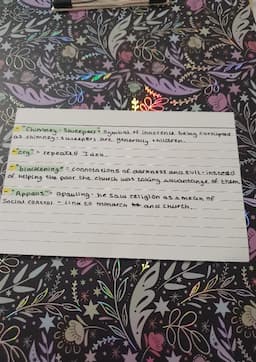 "Chimney-Sweepers" Symbol of innocence being corrupted
as chimney-sweepers are generally children.
"cry" - repeated idea.
"blackening" - connotations of darkness and evil - instead
of helping the poor the church was taking advantange of them
"Appals" - apauling - he saw religion as a mean of
Social control - Link to monarch and church.